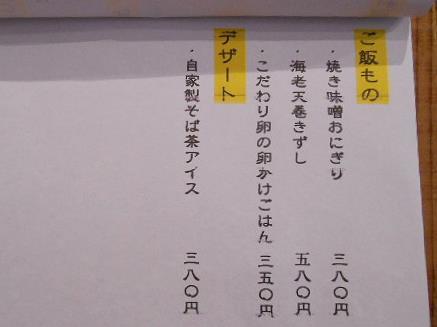 ご飯もの
・焼き味噌おにぎり 三八〇円
・海老天巻きずし 五八〇円
・こだわり卵の卵かけごはん 三五〇円
デザート
・自家製そば茶アイス 三八〇円